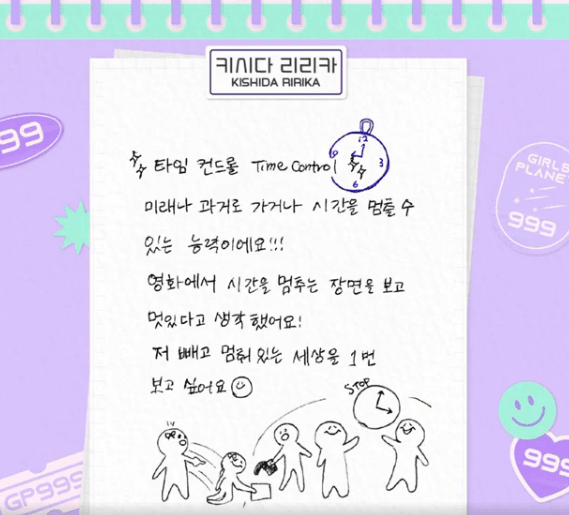 키시다 리리카
KISHIDA RIRIKA
99
타임 컨드롤 Time Control
12
9
3
6
GIRLS
PLANET
999
미래나 과거로 가거나 시간을 멈출 수
있는 능력이에요!!!
영화에서 시간을 멈추는 장면을 보고
멋있다고 생각했어요!
저 빼고 멈춰 있는 세상을 1번
보고 싶어요
STOP
999
GP999